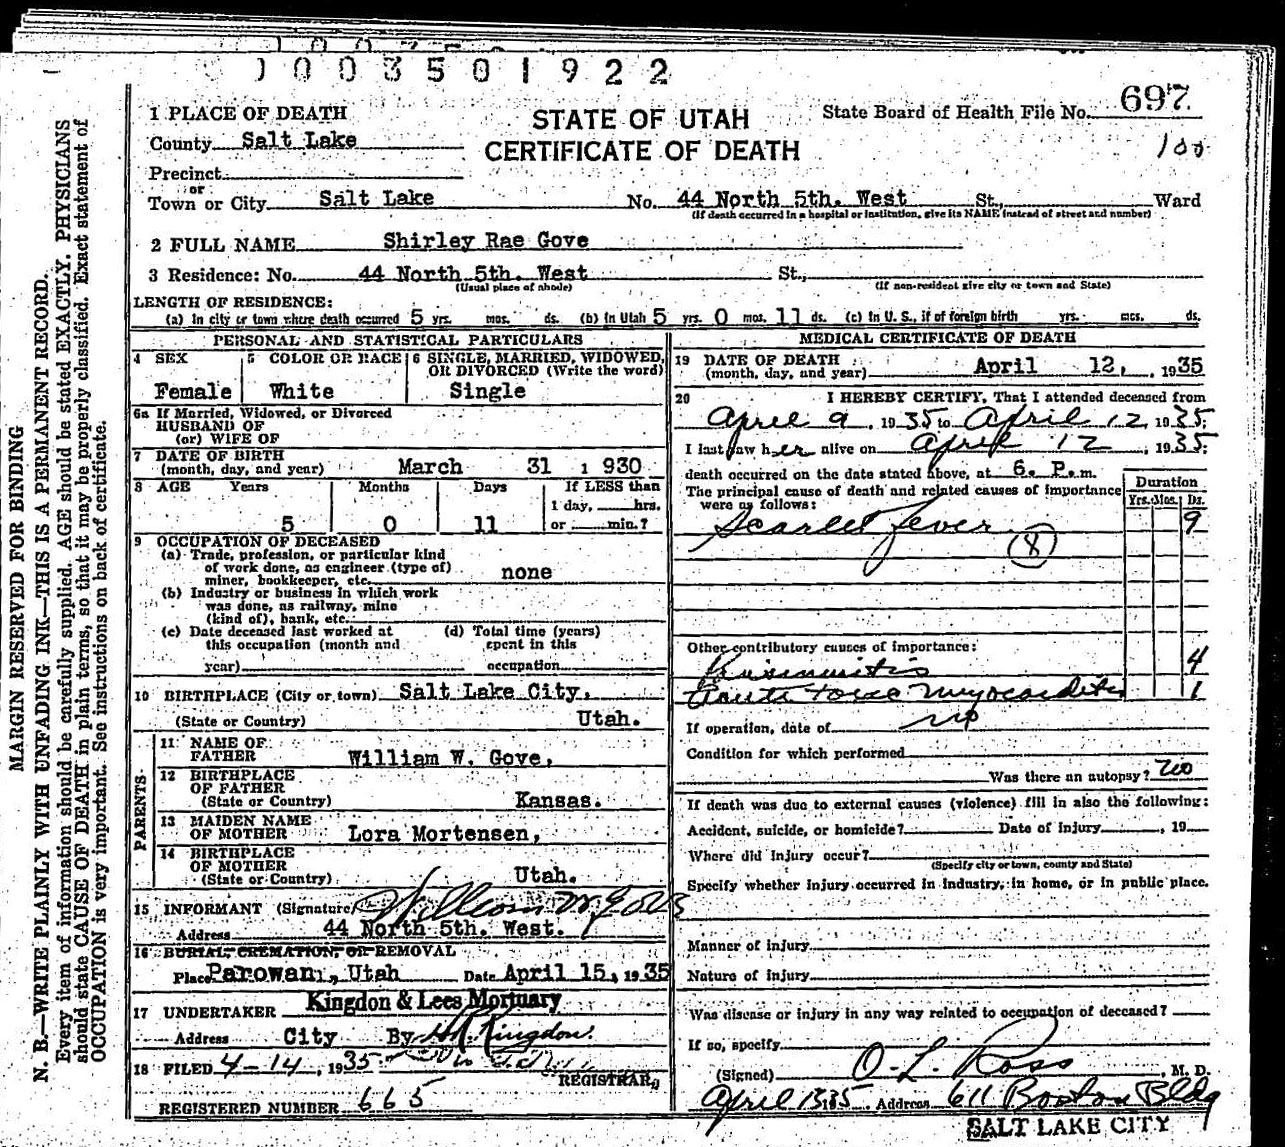 1003501922
1 PLACE OF DEATH
STATE OF UTAH
CERTIFICATE OF DEATH
State Board of Health File No. 697
100
County Salt Lake
Precinct
or
Town or City Salt Lake No. 44 North 5th. West St., Ward
(If death occurred in a hospital or institution, give its NAME instead of street and number)
2 FULL NAME Shirley Rae Gove
3 Residence: No. 44 North 5th. West St.,
(Usual place of abode) (If non-resident give city or town and State)
LENGTH OF RESIDENCE:
(a) In city or town where death occurred 5 yrs. mos. ds. (b) In Utah 5 yrs. 0 mos. 11 ds. (c) In U. S., if of foreign birth yrs. mos. ds.
PERSONAL AND STATISTICAL PARTICULARS
4 SEX 5 COLOR OR RACE 6 SINGLE, MARRIED, WIDOWED,
OR DIVORCED (Write the word)
Female White Single
6a If Married, Widowed, or Divorced
HUSBAND OF
(or) WIFE OF
7 DATE OF BIRTH
(month, day, and year) March 31 1930
8 AGE Years Months Days If LESS than
1 day, hrs.
5 0 11 or min.?
9 OCCUPATION OF DECEASED
(a) Trade, profession, or particular kind
of work done, as engineer (type of)
miner, bookkeeper, etc. none
(b) Industry or business in which work
was done, as railway, mine
(kind of), bank, etc.
(c) Date deceased last worked at (d) Total time (years)
this occupation (month and spent in this
year) occupation
10 BIRTHPLACE (City or town) Salt Lake City,
(State or Country) Utah.
PARENTS
11 NAME OF
FATHER William W. Gove,
12 BIRTHPLACE
OF FATHER
(State or Country) Kansas.
13 MAIDEN NAME
OF MOTHER Lora Mortensen,
14 BIRTHPLACE
OF MOTHER
(State or Country) Utah.
15 INFORMANT (Signature) William W. Gove
Address 44 North 5th. West.
16 BURIAL, CREMATION, OR REMOVAL
Place Parowan, Utah Date April 15, 1935
17 UNDERTAKER Kingdon & Lees Mortuary
Address City By Kingdon.
18 FILED 4-14, 1935
REGISTRAR
REGISTERED NUMBER 665
MEDICAL CERTIFICATE OF DEATH
19 DATE OF DEATH
(month, day, and year) April 12, 1935
20 I HEREBY CERTIFY, That I attended deceased from
April 9, 1935 to April 12 1935;
I last saw her alive on April 12, 1935;
death occurred on the date stated above, at 6. P. m.
The principal cause of death and related causes of importance
were as follows:
Duration
Yrs. Mos. Ds.
Scarlet fever 9
(8)
Other contributory causes of importance:
4
Acute toxic myocarditis 1
If operation, date of no
Condition for which performed
Was there an autopsy? no
If death was due to external causes (violence) fill in also the following:
Accident, suicide, or homicide? Date of injury , 19
Where did injury occur?
(Specify city or town, county and State)
Specify whether injury occurred in industry, in home, or in public place.
Manner of injury
Nature of injury
Was disease or injury in any way related to occupation of deceased?
If so, specify
(Signed) O. L. Ross, M. D.
April 1335 Address 611 Boston Bldg
SALT LAKE CITY
MARGIN RESERVED FOR BINDING
N. B.—WRITE PLAINLY WITH UNFADING INK—THIS IS A PERMANENT RECORD.
Every item of information should be carefully supplied. AGE should be stated EXACTLY. PHYSICIANS
should state CAUSE OF DEATH in plain terms, so that it may be properly classified. Exact statement of
OCCUPATION is very important. See instructions on back of certificate.